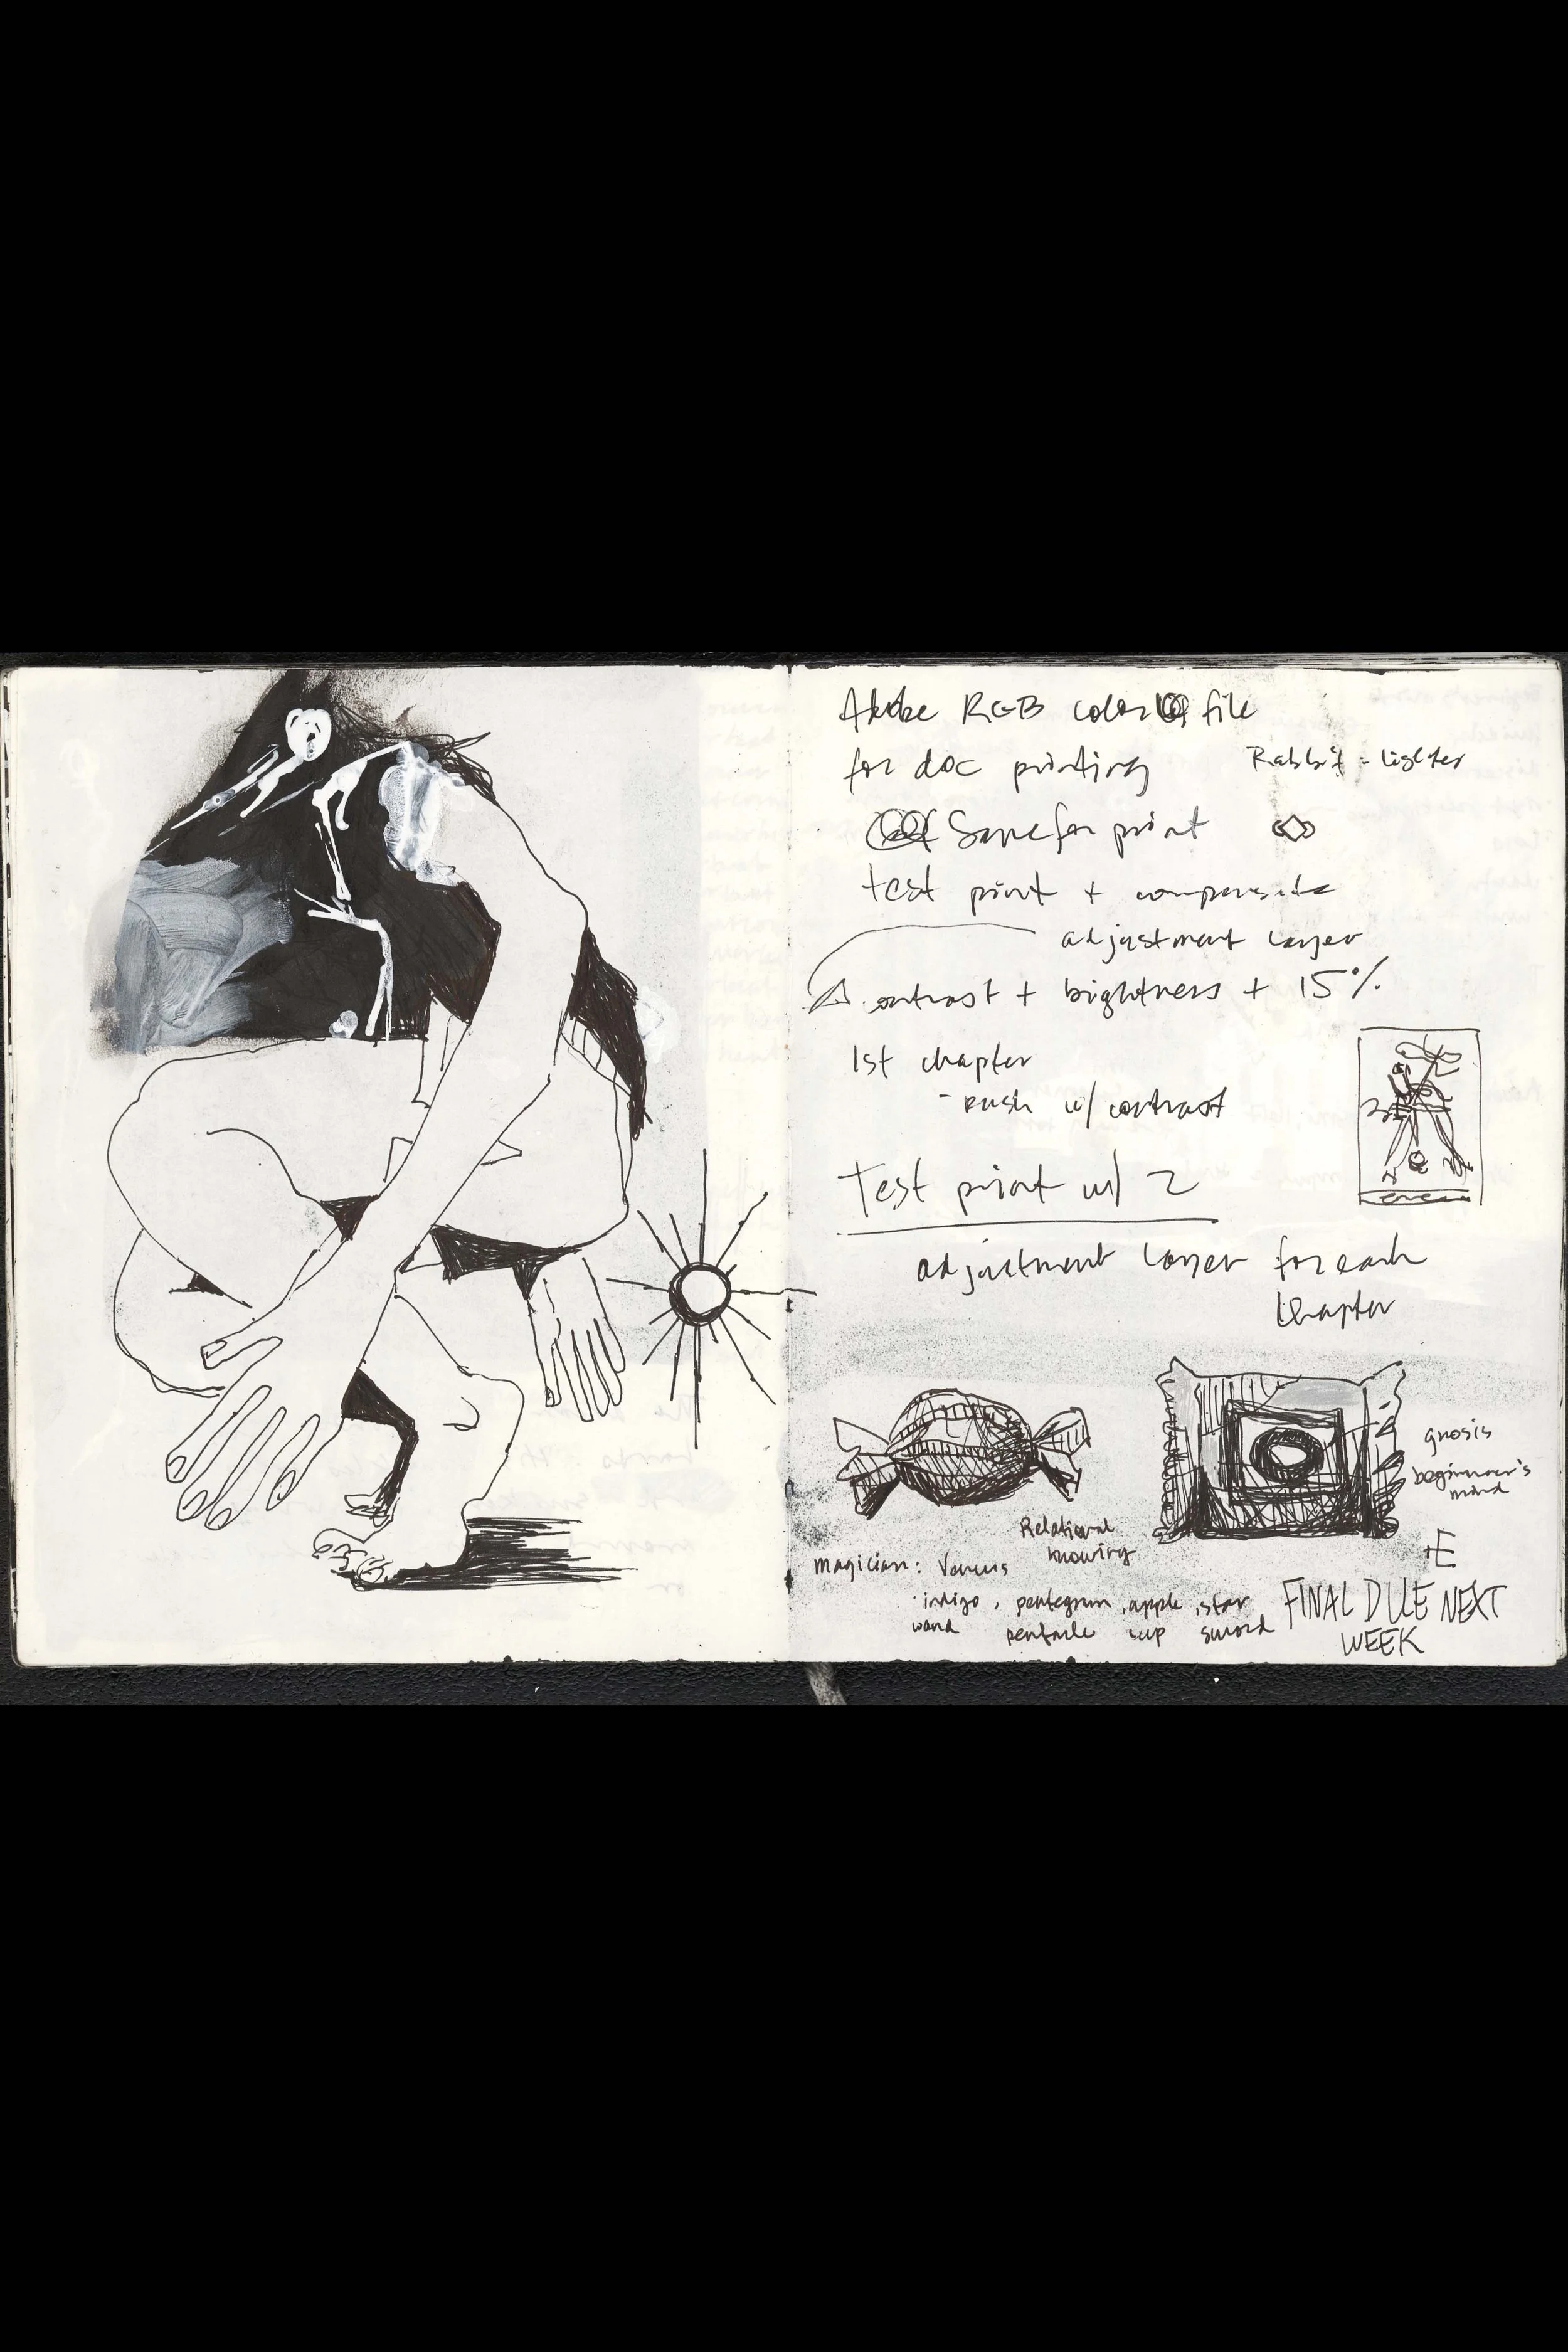 Adobe RGB color file
for doc printing
Rabbit = lighter
Same for print
test print + composite
adjustment layer
contrast + brightness + 15%
1st chapter
- push w/ contrast
Test print w/ 2
adjustment layer for each
chapter
gnosis
beginner's
mind
Relational
knowing
magician: Venus
indigo, pentegram, apple, star
wand pentacle cup sword
+E
FINAL DUE NEXT
WEEK